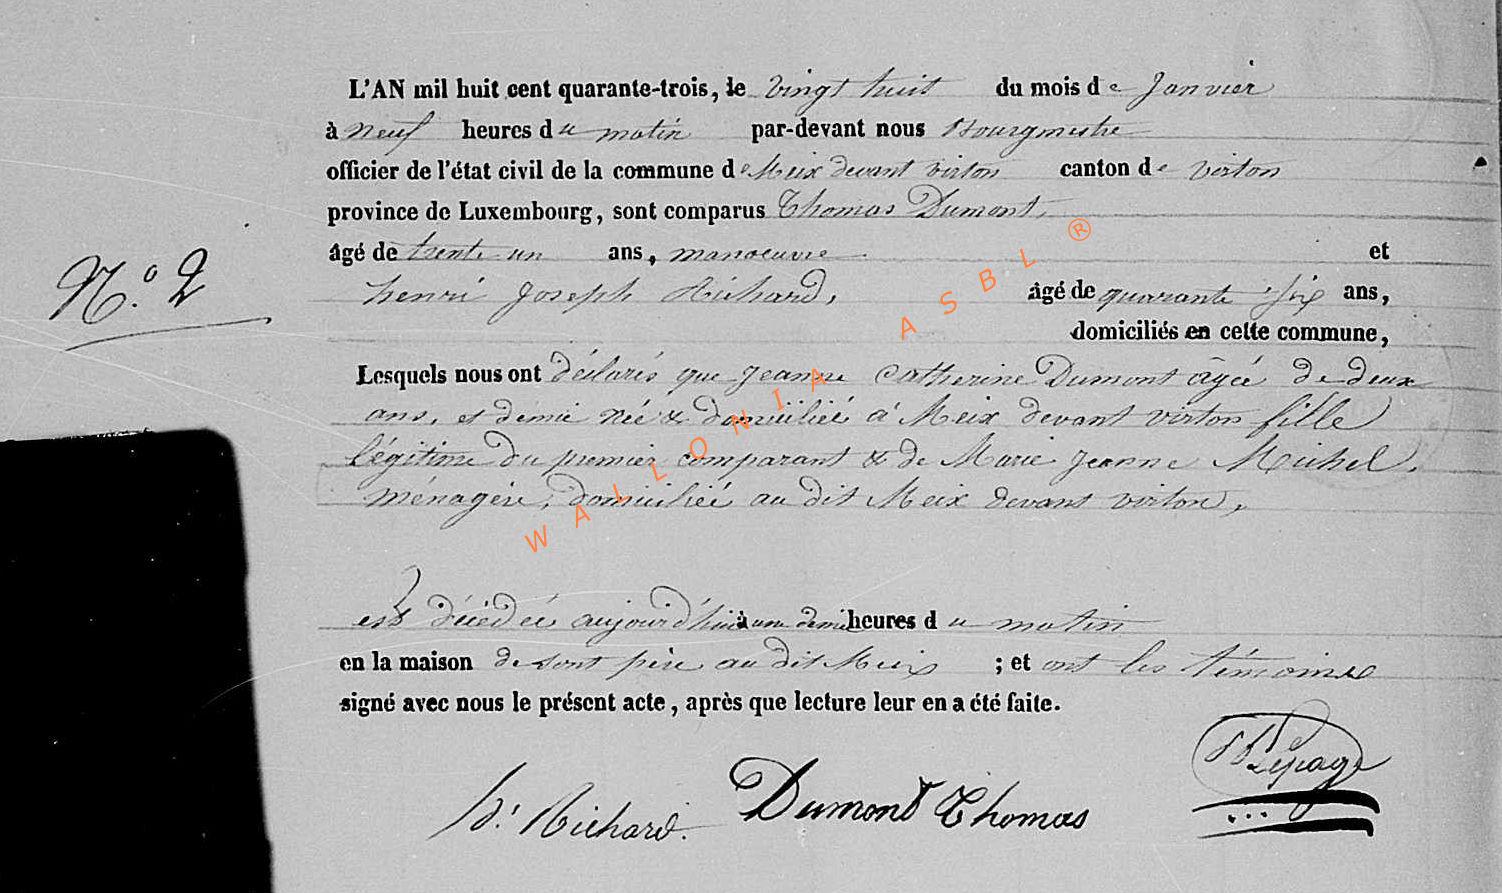 L'AN mil huit cent quarante-trois, le vingt huit du mois de Janvier
à neuf heures du matin par-devant nous Bourgmestre
officier de l'état civil de la commune de Meix devant virton canton de virton
province de Luxembourg, sont comparus Thomas Dumont,
âgé de trente un ans, manoeuvre et
N.º 2
henri Joseph Richard, âgé de quarante six ans,
domiciliés en cette commune,
Lesquels nous ont déclarés que Jeanne Catherine Dumont âgée de deux
ans, et demie née & domiciliée à Meix devant virton fille
légitime du premier comparant & de Marie Jeanne Michel,
ménagère, domiciliée au dit Meix devant virton,
est décédée aujourd'hui à une demie heures du matin
en la maison de sont père au dit Meix ; et ont les témoins
signé avec nous le présent acte, après que lecture leur en a été faite.
h. Richard. Dumont Thomas Lepage
WALLONIA ASBL ®